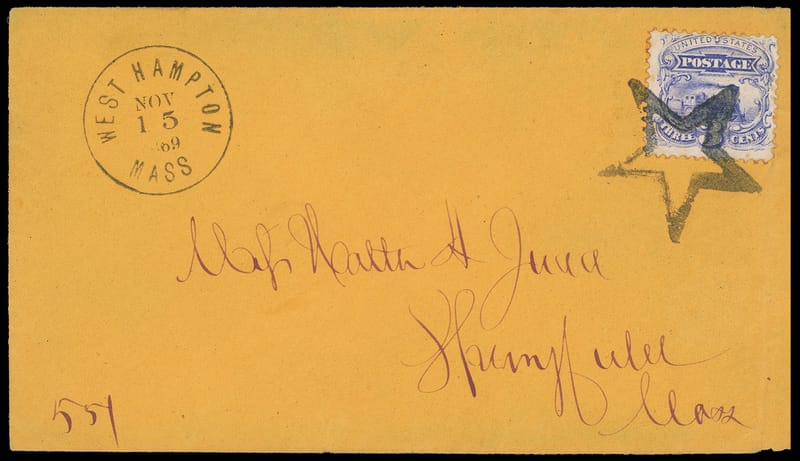 WEST HAMPTON
NOV
15
69
MASS
UNITED STATES
POSTAGE
THREE 3 CENTS
H
Springfield
Mass
551